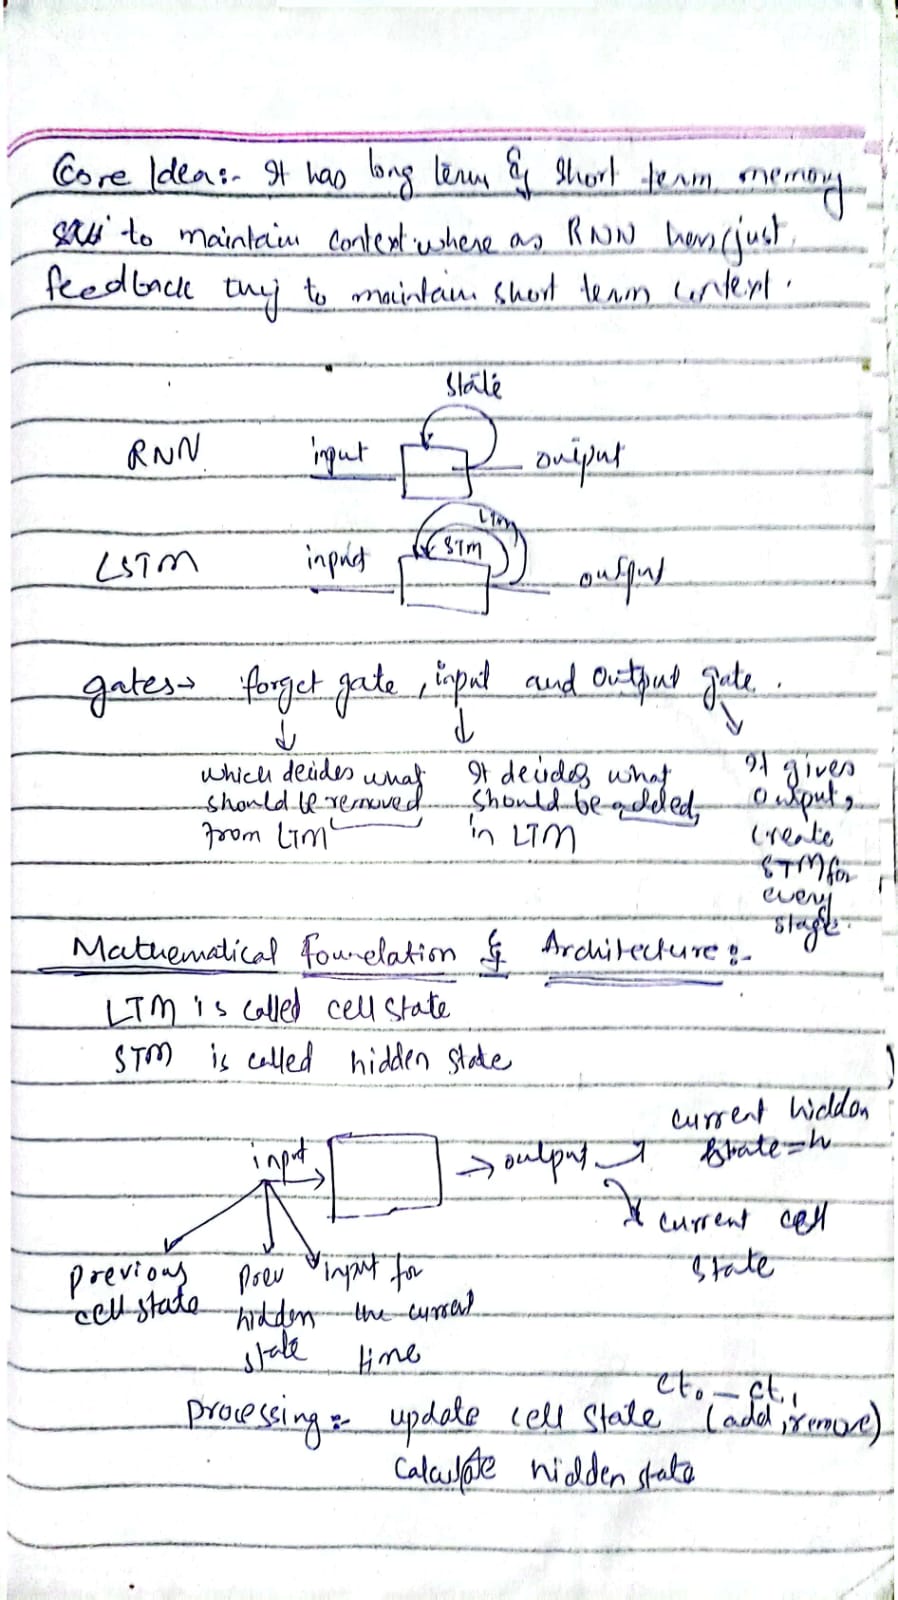 Core Idea:- It has long term & short term memory
to maintain context where as RNN have just
feedback try to maintain short term context.
state
RNN input output
LTM
STM
LSTM input output
gates → forget gate, input and output gate.
which decides what should be removed from LTM
It decides what should be added, in LTM
It gives output, create STM for every stage.
Mathematical foundation & Architecture:-
LTM is called cell state
STM is called hidden state
input → output
current hidden state = h
current cell state
previous cell state
prev hidden state
input for the current time
Ct0 - Ct1
Processing:- update cell state (add, remove)
Calculate hidden state